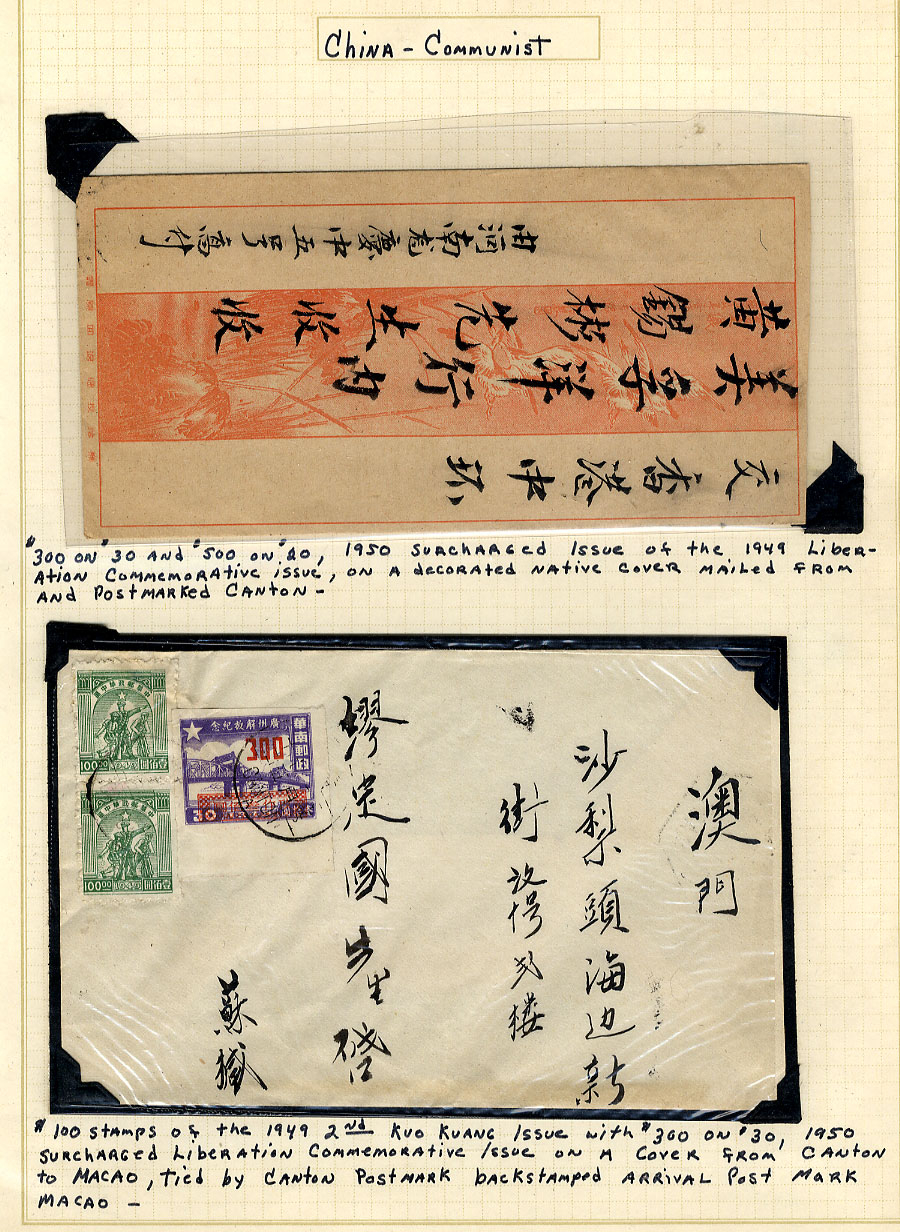 China - Communist
由河南龍慶中五号高付
黃錫彬先生收收
美亨洋行內
交香港中环
$300 on $30 and $500 on $20, 1950 surcharged issue of the 1949 Liber-
ation Commemorative issue, on a decorated native cover mailed from
and Postmarked Canton -
中華郵政華中區
100.00 壹佰圓
中華郵政華中區
100.00 壹佰圓
廣州解放紀念
華南郵政
300
澳門
沙梨頭海边新
街 号 楼
繆定國先生啓
蘇緘
$100 stamps of the 1949 2nd Kuo Kuang Issue with $300 on $30, 1950
surcharged Liberation Commemorative Issue on a cover from Canton
to Macao, tied by Canton Postmark backstamped arrival Post Mark
Macao -